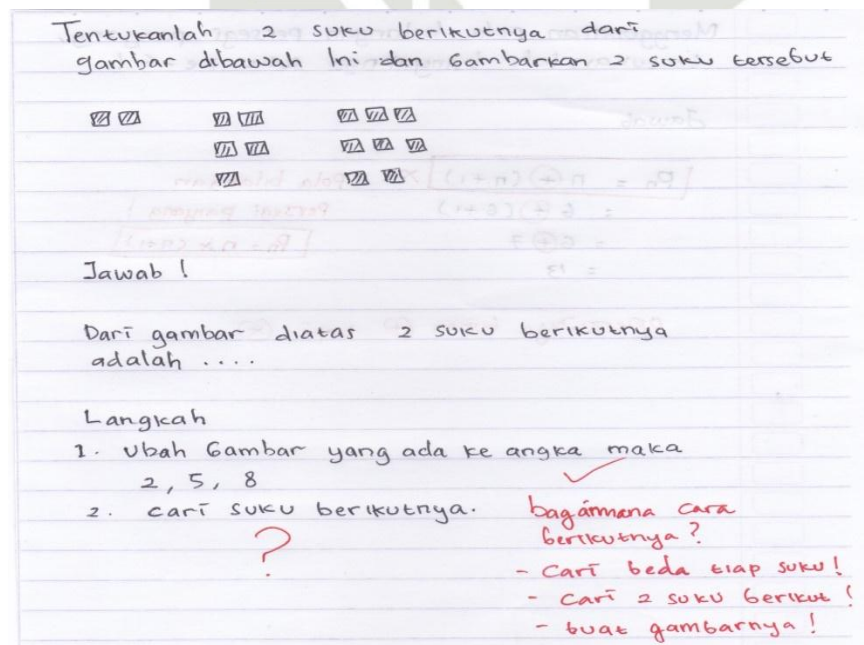 Tentukanlah 2 suku berikutnya dari
gambar dibawah Ini dan Gambarkan 2 suku tersebut
Jawab !
Dari gambar diatas 2 suku berikutnya
adalah ....
Langkah
1. Ubah Gambar yang ada ke angka maka
2, 5, 8
2. cari suku berikutnya.
?
bagaimana cara
berikutnya?
- Cari beda tiap suku!
- Cari 2 suku berikut!
- buat gambarnya!